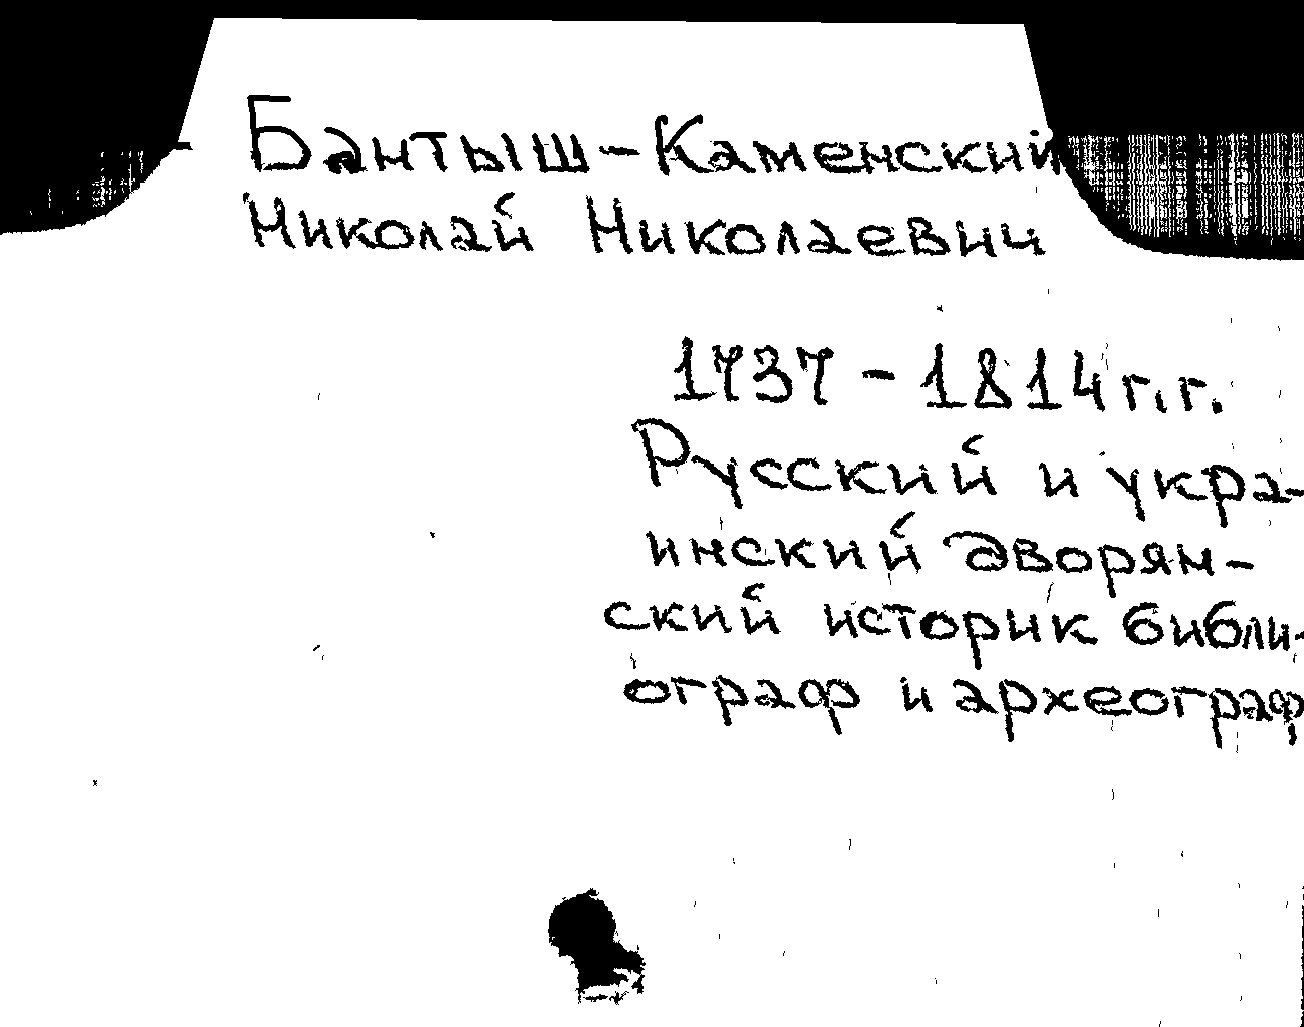 Бантыш-Каменский
Николай Николаевич
1737 - 1814 г.г.
Русский и укра-
инский дворян-
ский историк библи-
ограф и археограф